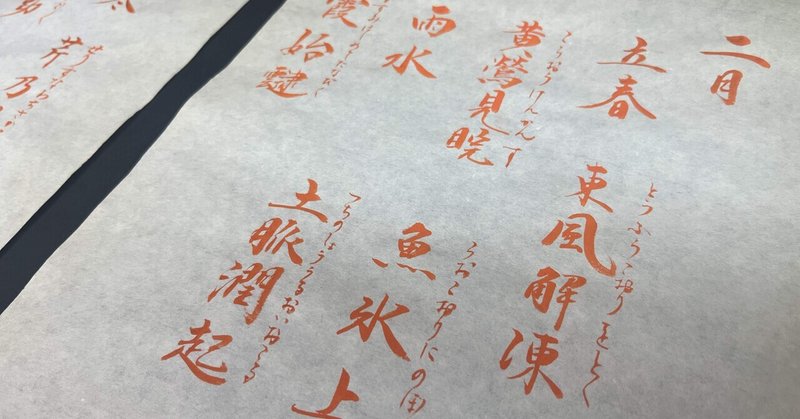 二月
立春
東風解凍
とうふうこおりをとく
黄鶯見睆
こうおうけんかんす
魚氷上
うおこおりにの
雨水
土脈潤起
つちのしょううるおいおこる
霞始靆
芹乃
せりすなわちさか